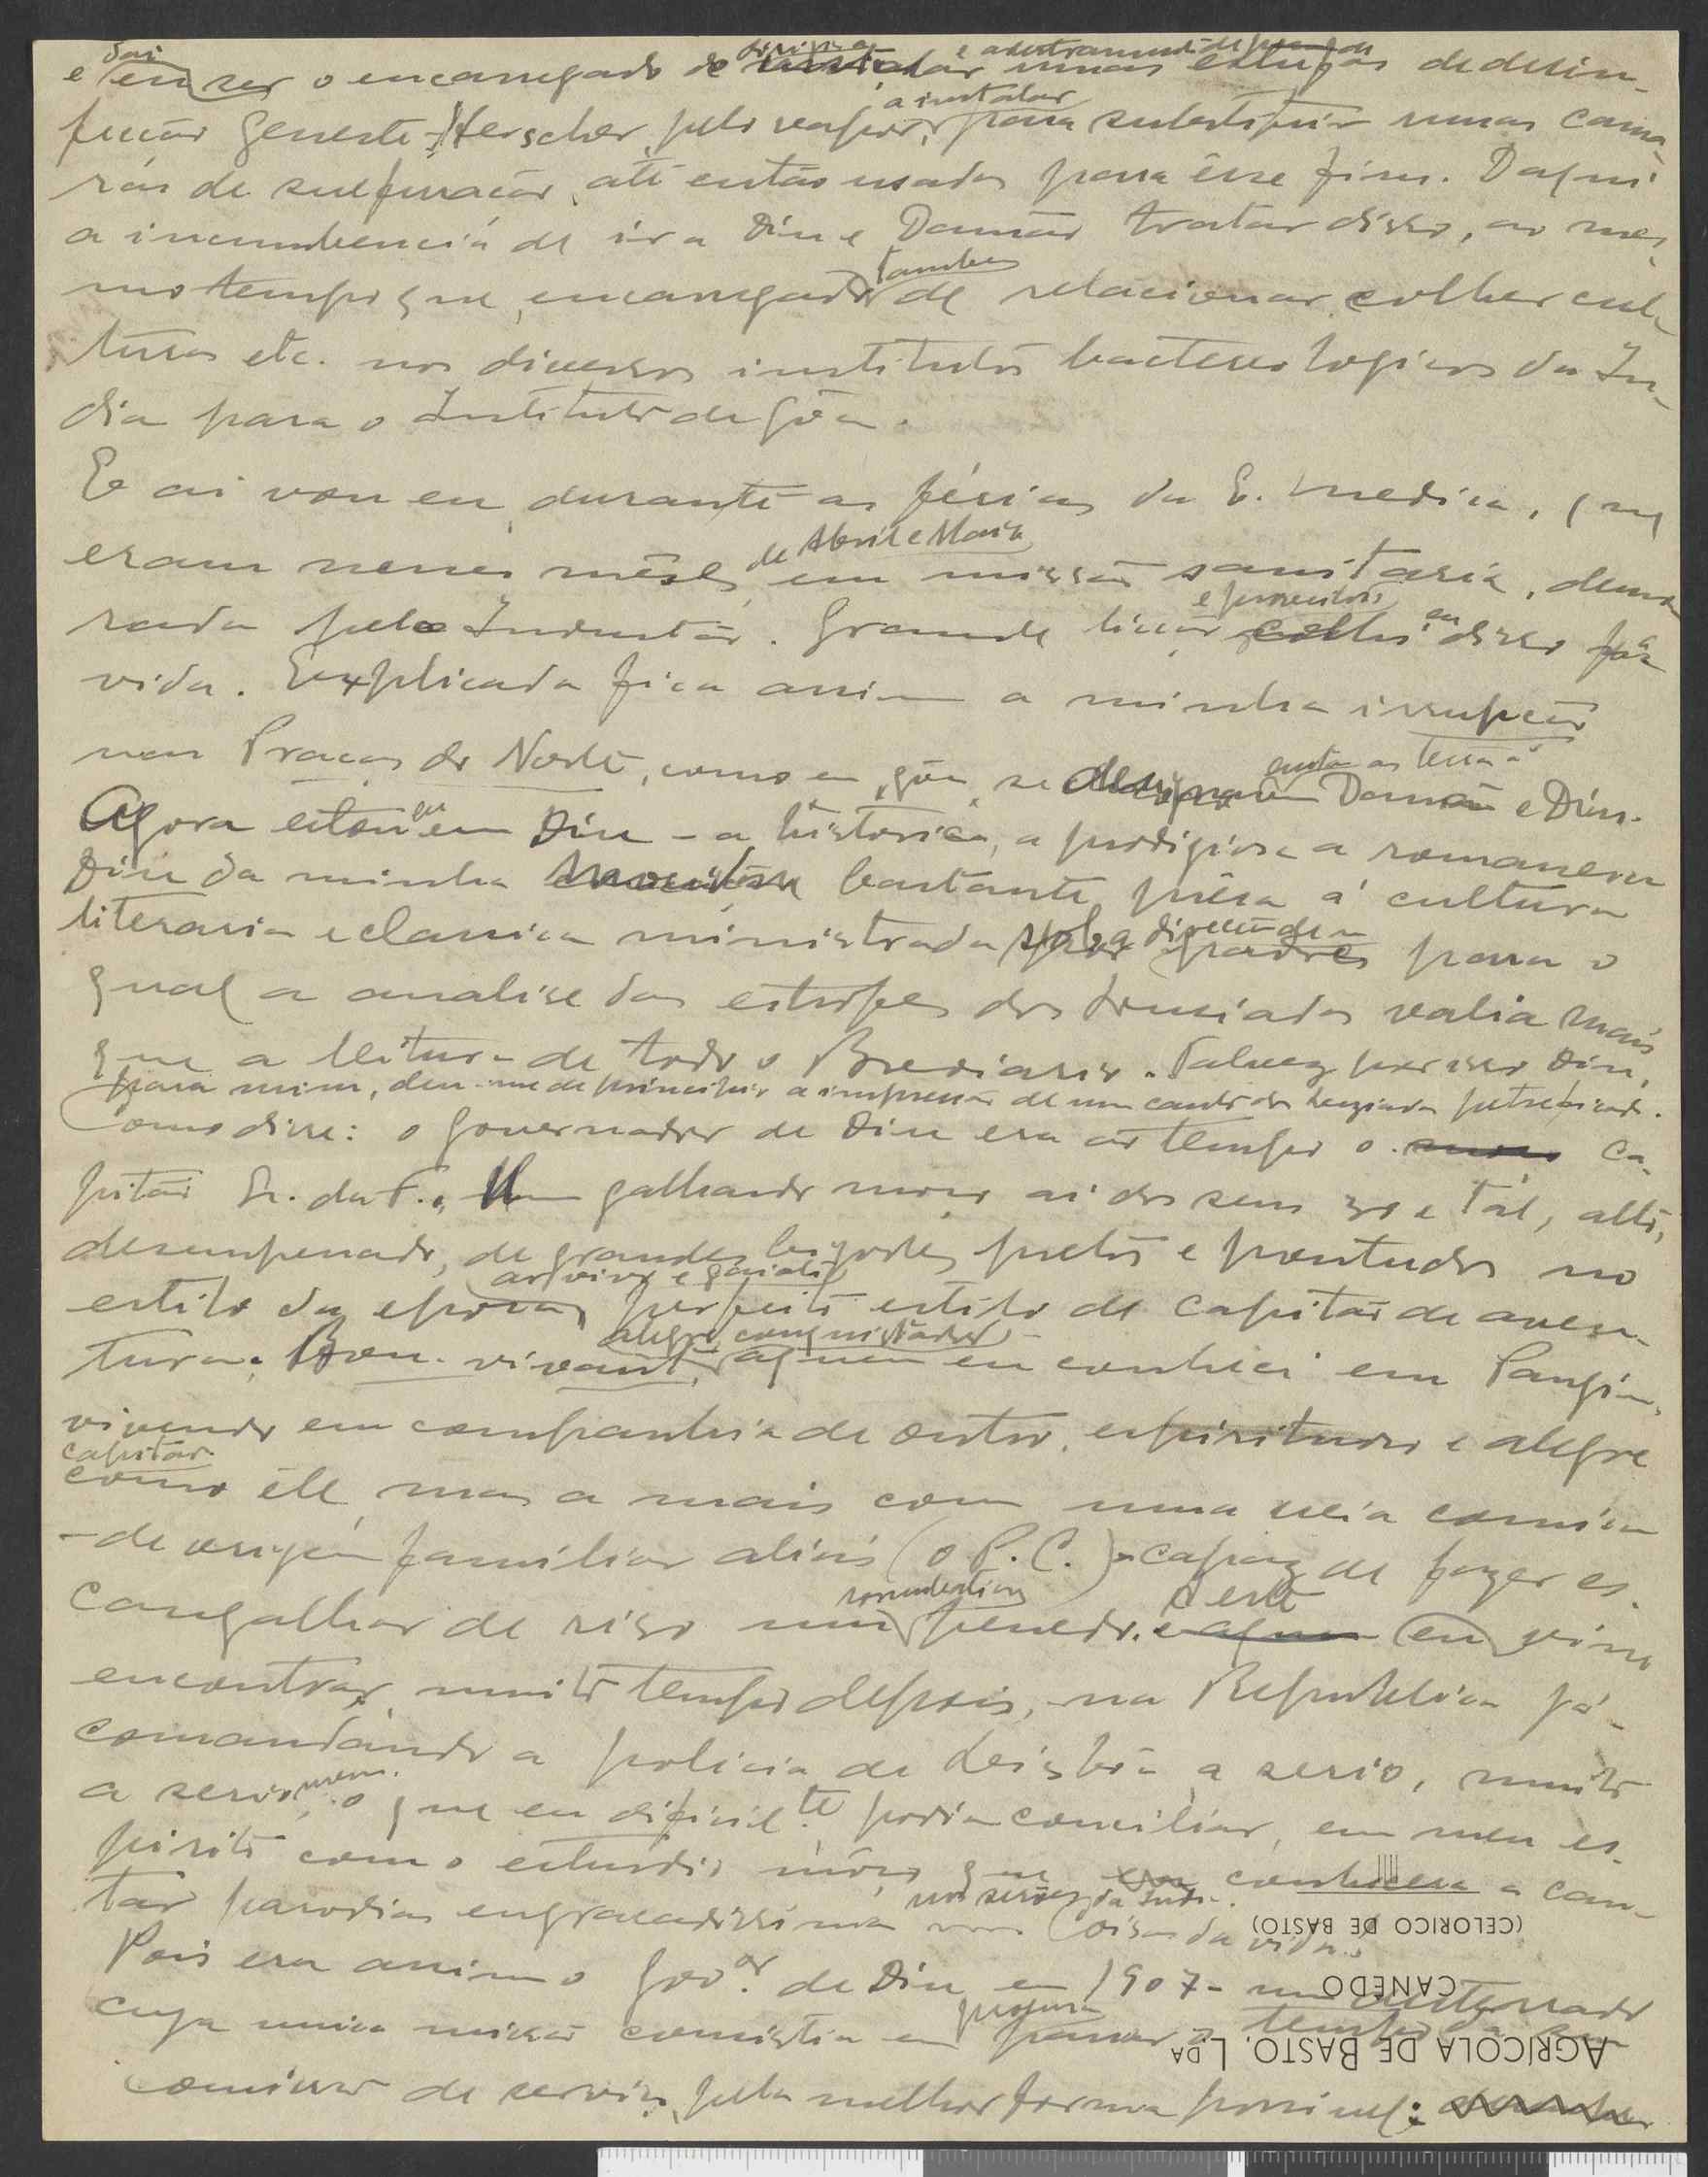 e eu ser o encarregado de dirigir umas estufas de desin-
fecção Geneste-Herscher, pelo vapor, a instalar para substituir umas cama-
ras de sulfuração, até então usadas para êsse fim. Daqui
a incumbencia de ir a Diu e Damão tratar disso, ao mes-
mo tempo que, encarregado tambem de relacionar, colher cul-
turas etc. nos diversos institutos bacteriologicos da In-
dia para o Instituto de Gôa.
E ai vou eu, durante as férias da E. Medica, que
eram nesses mêses de Abril e Maio, em missão sanitaria, demo-
rada pelo Industão. Grande lição e proveitosa colhi eu disso pª a
vida. Explicada fica assim a minha irrupção
nas Praças do Norte, como em Gôa se designavam Damão e Diu.
Agora estou eu em Diu - a historica, a prodigiosa a romanesca
Diu da minha bastante prêsa á cultura
literaria e classica ministrada sob a direcção de padres para o
qual a analise das estrofes dos Lusiadas valia mais
que a leitura de todo o Breviario. Talvez por isso Diu,
para mim, deu-me de principio a impressão de um canto dos Lusiadas petrificado.
Como disse: o Governador de Diu era ao tempo o ca-
pitão S. da F., Um galhardo moço ai dos seus 30 e tal, alto,
desempenado, de grandes bigodes pretos e pontudos no
estilo da epoca, ar vivo e gaiato perfeito estilo de capitão de aven-
tura. Bon-vivant, alegre conquistador - a quem eu conheci em Pangim,
vivendo em companhia de outro, espirituoso e alegre
capitão como êle, mas a mais com uma veia comica
- de origem familiar aliás (o P. C.) - capaz de fazer es-
cangalhar de riso um penedo. A este eu vim
encontrar, muito tempo depois, na Republica já -
comandando a policia de Lisbôa a serio, muito
a serio mesmo, o que eu dificilte. podia conciliar, em meu es-
pirito com o esturdio môço que eu conhecera a can-
tar parodias engraçadissimas nos serões da India. Coisas da vida...
Pois era assim o Govor. de Diu em 1907 - um desterrado
cuja unica missão consistia em procurar passar o tempo da sua
comissão de serviço, pela melhor forma possivel:
AGRÍCOLA DE BASTO, L.DA
CANEDO
(CELORICO DE BASTO)